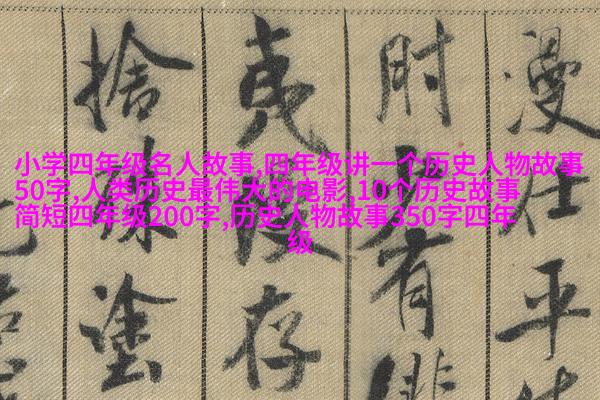 小学四年级名人故事,四年级讲一个历史人物故事
50字,人类历史最伟大的电影,10个历史故事
简短四年级200字,历史人物故事350字四年
级
漫仕平
有
夷 存
捨殊塗